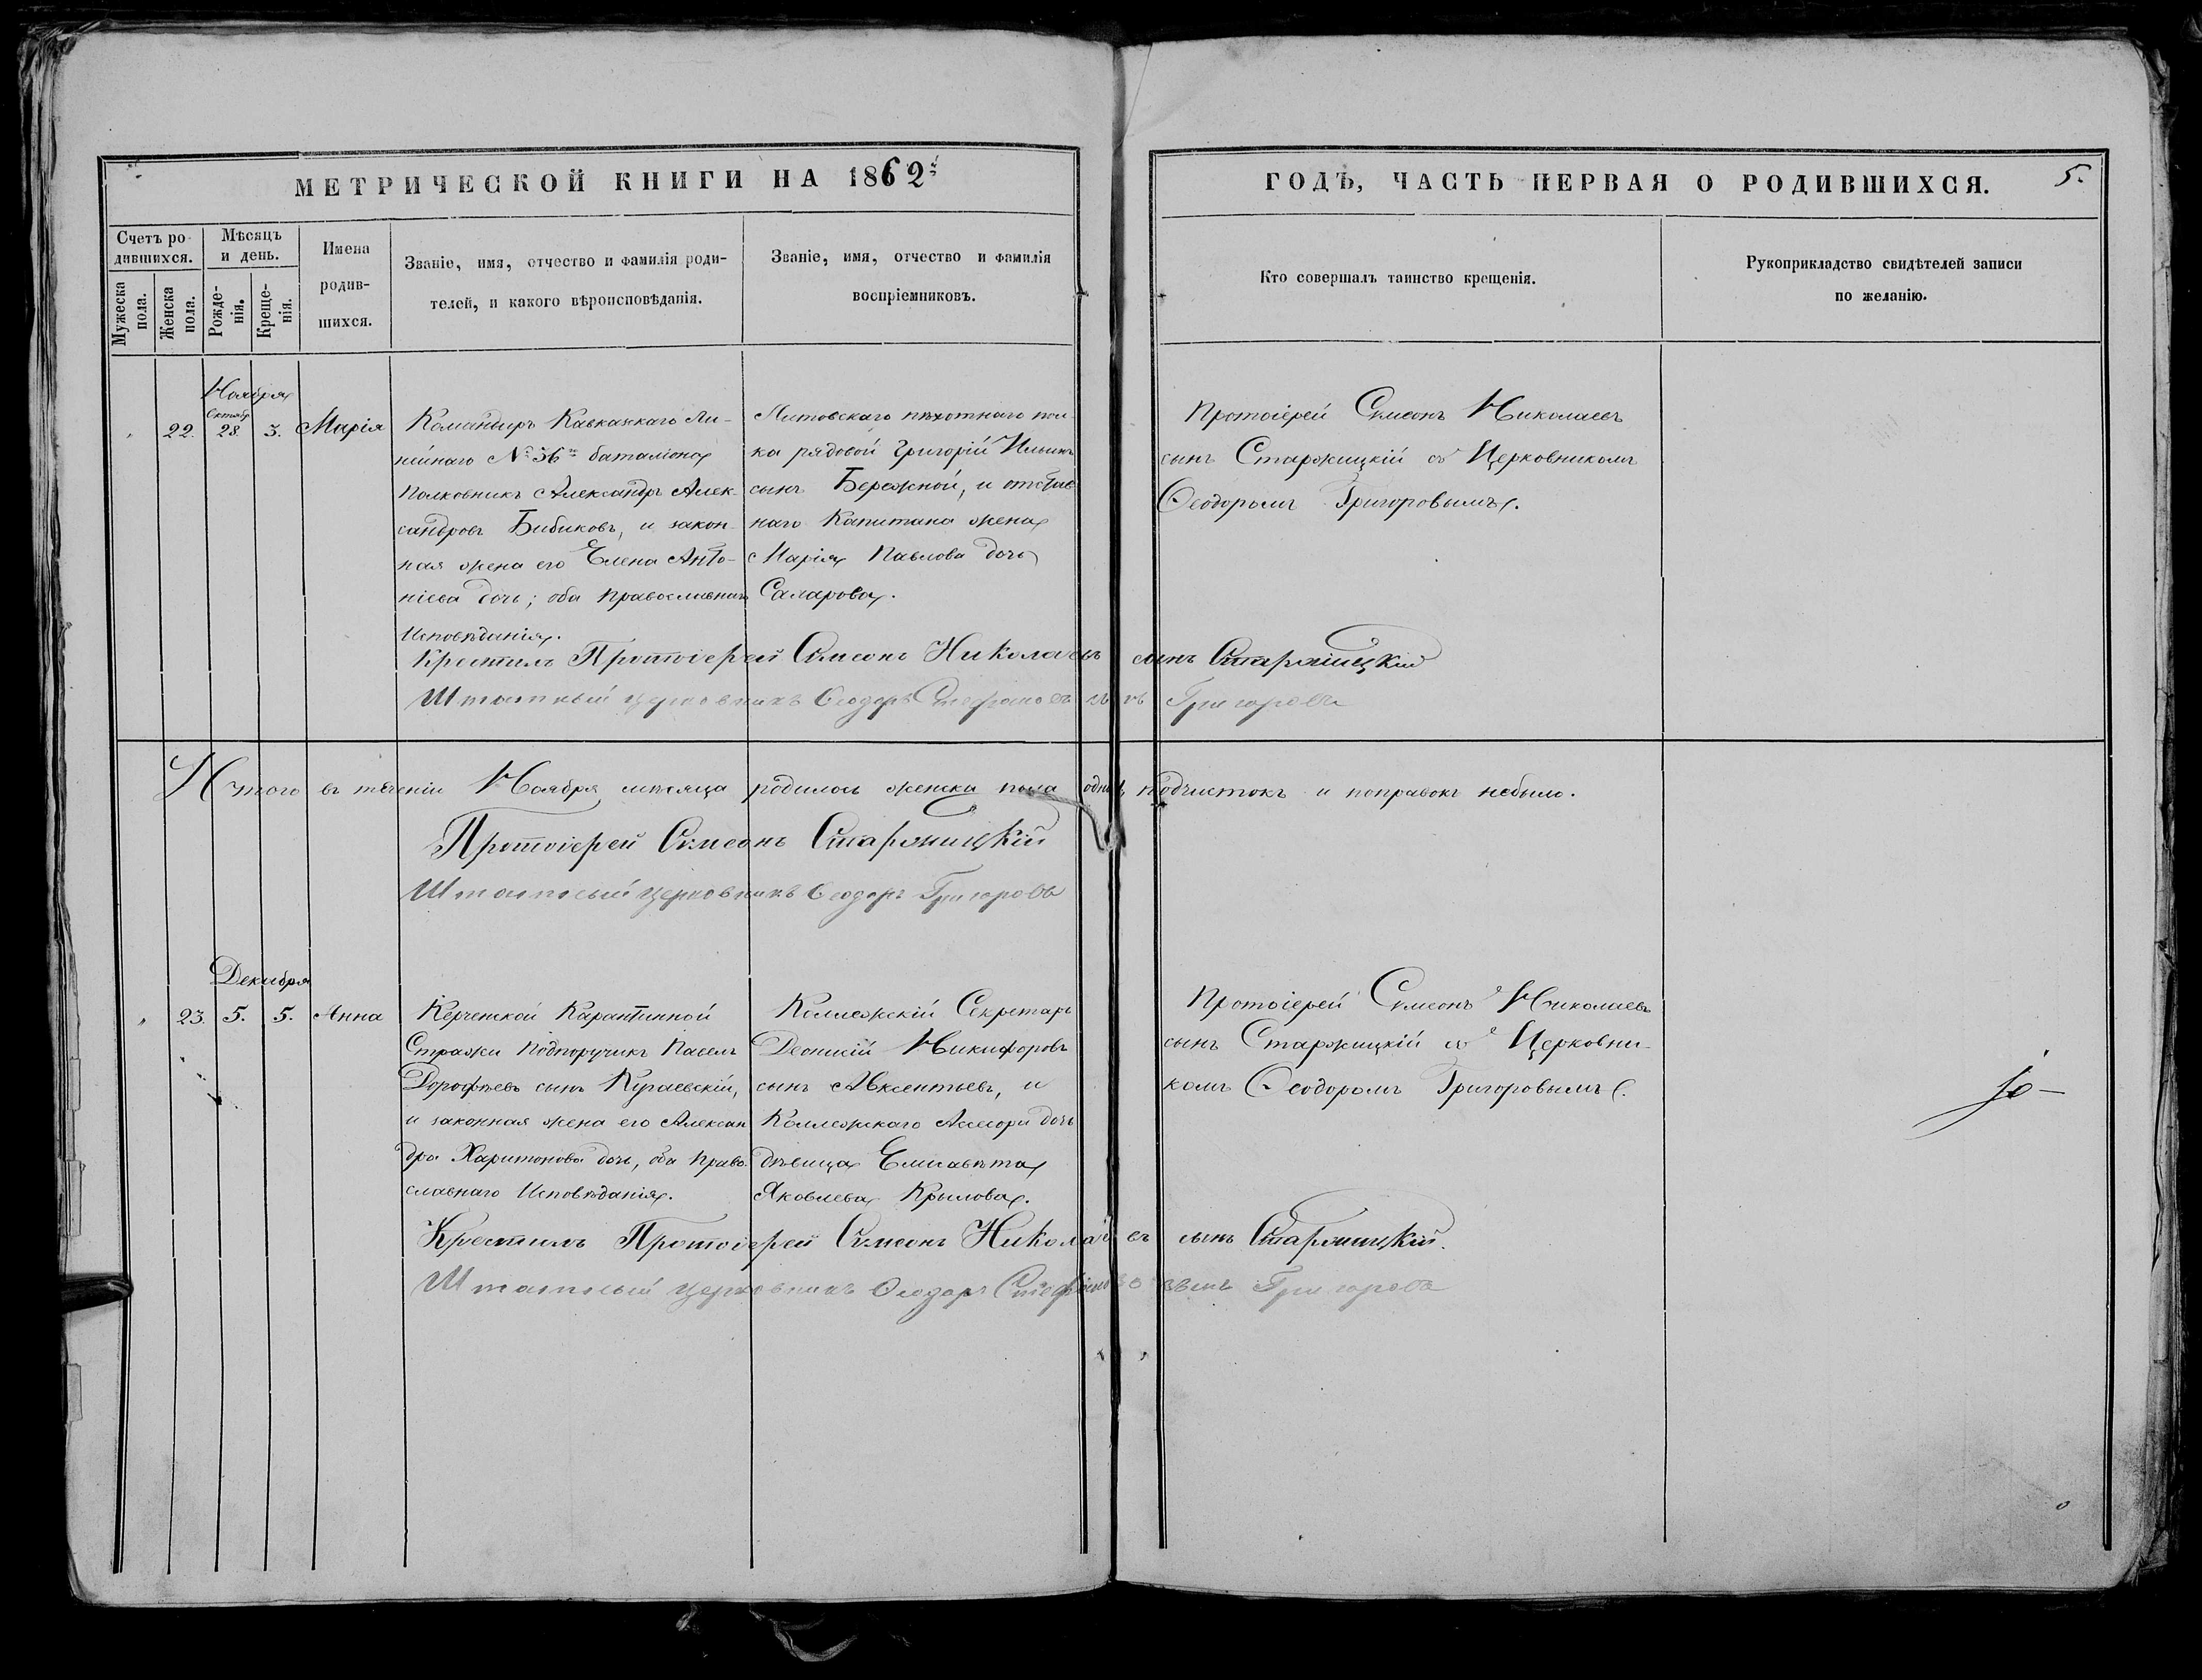 МЕТРИЧЕСКОЙ КНИГИ НА 1862й
ГОДЪ, ЧАСТЬ ПЕРВАЯ О РОДИВШИХСЯ.
5.
Счетъ ро-
дившихся.
Мужеска
пола.
Женска
пола.
Мѣсяцъ
и день.
Рожде-
нія.
Креще-
нія.
Имена
родив-
шихся.
Званіе, имя, отчество и фамилія роди-
телей, и какого вѣроисповѣданія.
Званіе, имя, отчество и фамилія
воспріемниковъ.
Кто совершалъ таинство крещенія.
Рукоприкладство свидѣтелей записи
по желанію.
Ноября
22.
Октябр
28.
3.
Марія
Командиръ Кавказкаго Ли-
нейнаго № 36го баталіона
Полковникъ Александръ Алек-
сандровъ Бибиковъ, и закон-
ная жена его Елена Анто-
ніева дочь; оба Православнаго
Исповѣданія.
Литовскаго пѣхотнаго пол-
ка рядовой Григорій Ильинъ
сынъ Бережной, и отстав
наго Капитана жена
Марія Павлова дочь
Сапарова.
Протоіерей Симеонъ Николаевъ
сынъ Старжицкій съ Церковникомъ
Ѳеодоромъ Григоровымъ.
Крестилъ Протоіерей Симеонъ Николаевъ сынъ Старжицкій
Штатный церковникъ Ѳеодоръ Стефановъ сынъ Григоровъ
Итого въ теченіи Ноября мѣсяца родилось женска пола одна, подчистокъ и поправокъ небыло.
Протоіерей Симеонъ Старжицкій
Штатный церковникъ Ѳеодоръ Григоровъ
Декабря
23.
5.
5.
Анна
Керченской Карантинной
Стражи Подпоручикъ Павелъ
Дорофѣевъ сынъ Кураевскій,
и законная жена его Алексан
дра Харитонова дочь, оба Право-
славнаго Исповѣданія.
Коллежскій Секретарь
Деонисій Никифоровъ
сынъ Авксентьевъ, и
Коллежскаго Асесора дочь
дѣвица Елисавѣта
Яковлева Крылова.
Протоіерей Симеонъ Николаевъ
сынъ Старжицкій съ Церковни-
комъ Ѳеодоромъ Григоровымъ.
Крестилъ Протоіерей Симеонъ Николаевъ сынъ Старжицкій.
Штатный церковникъ Ѳеодоръ Стефановъ сынъ Григоровъ